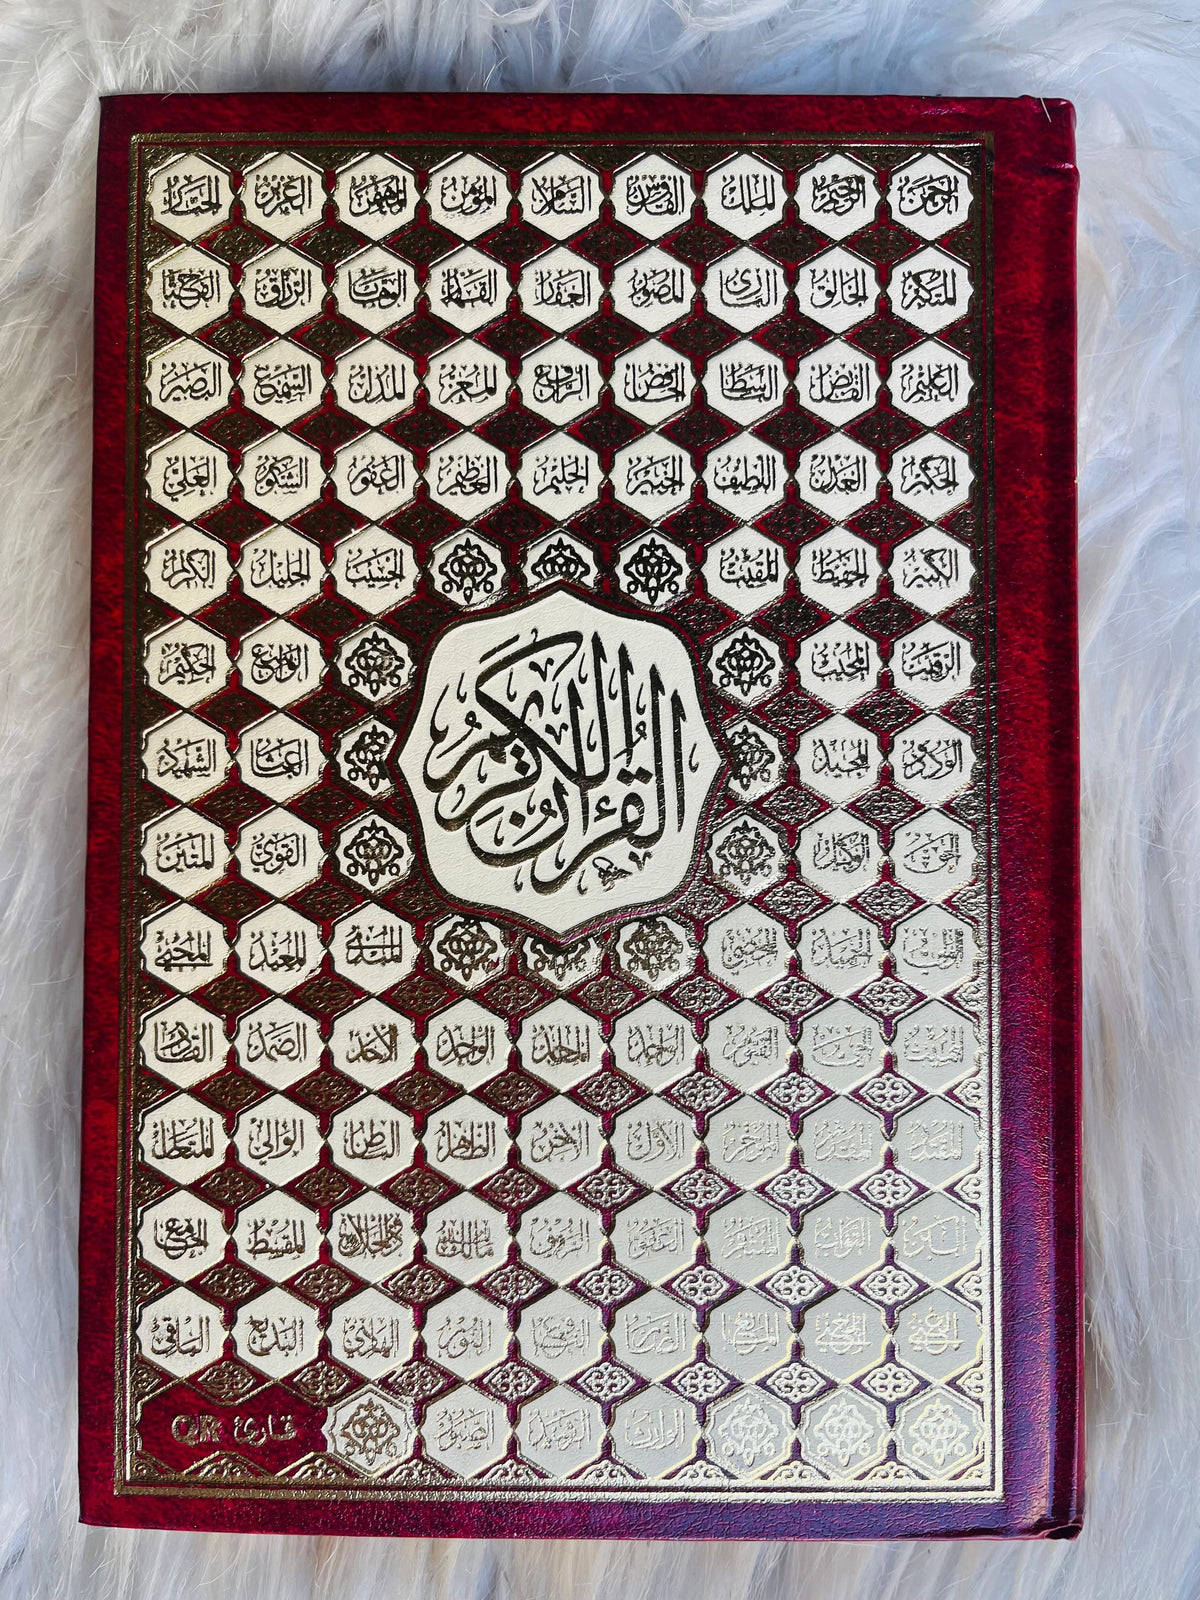 الرحمن الرحيم الملك القدوس السلام المؤمن المهيمن العزيز الجبار
المتكبر الخالق البارئ المصور الغفار القهار الوهاب الرزاق الفتاح
العليم القابض الباسط الخافض الرافع المعز المذل السميع البصير
الحكم العدل اللطيف الخبير الحليم العظيم الغفور الشكور العلي
الكبير الحفيظ المقيت الحسيب الجليل الكريم
الرقيب المجيب الواسع الحكيم
الودود المجيد الباعث الشهيد
القرآن الكريم
الحق الوكيل القوي المتين
الحميد المحصي المبدئ المعيد المحيي
المميت القيوم الواجد الماجد الواحد الأحد الصمد القادر
المقتدر المقدم المؤخر الأول الآخر الظاهر الباطن الوالي المتعال
البر التواب المنتقم العفو الرؤوف مالك الملك المقسط الجامع
الغني المغني المانع الضار النافع النور الهادي البديع الباقي
الوارث الرشيد الصبور
قارئ QR